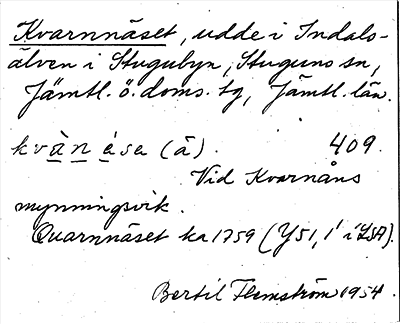 Kvarnnäset, udde i Indals-
älven i Stugubyn, Stuguns sn,
Jämtl. ö. doms. tg, Jämtl. län.
kvàn ésa (â). 409.
Vid Kvarnåns
mynningsvik.
Quarnnäset ka 1759 (Y51, 1' i LSA).
Bertil Flemström 1954.